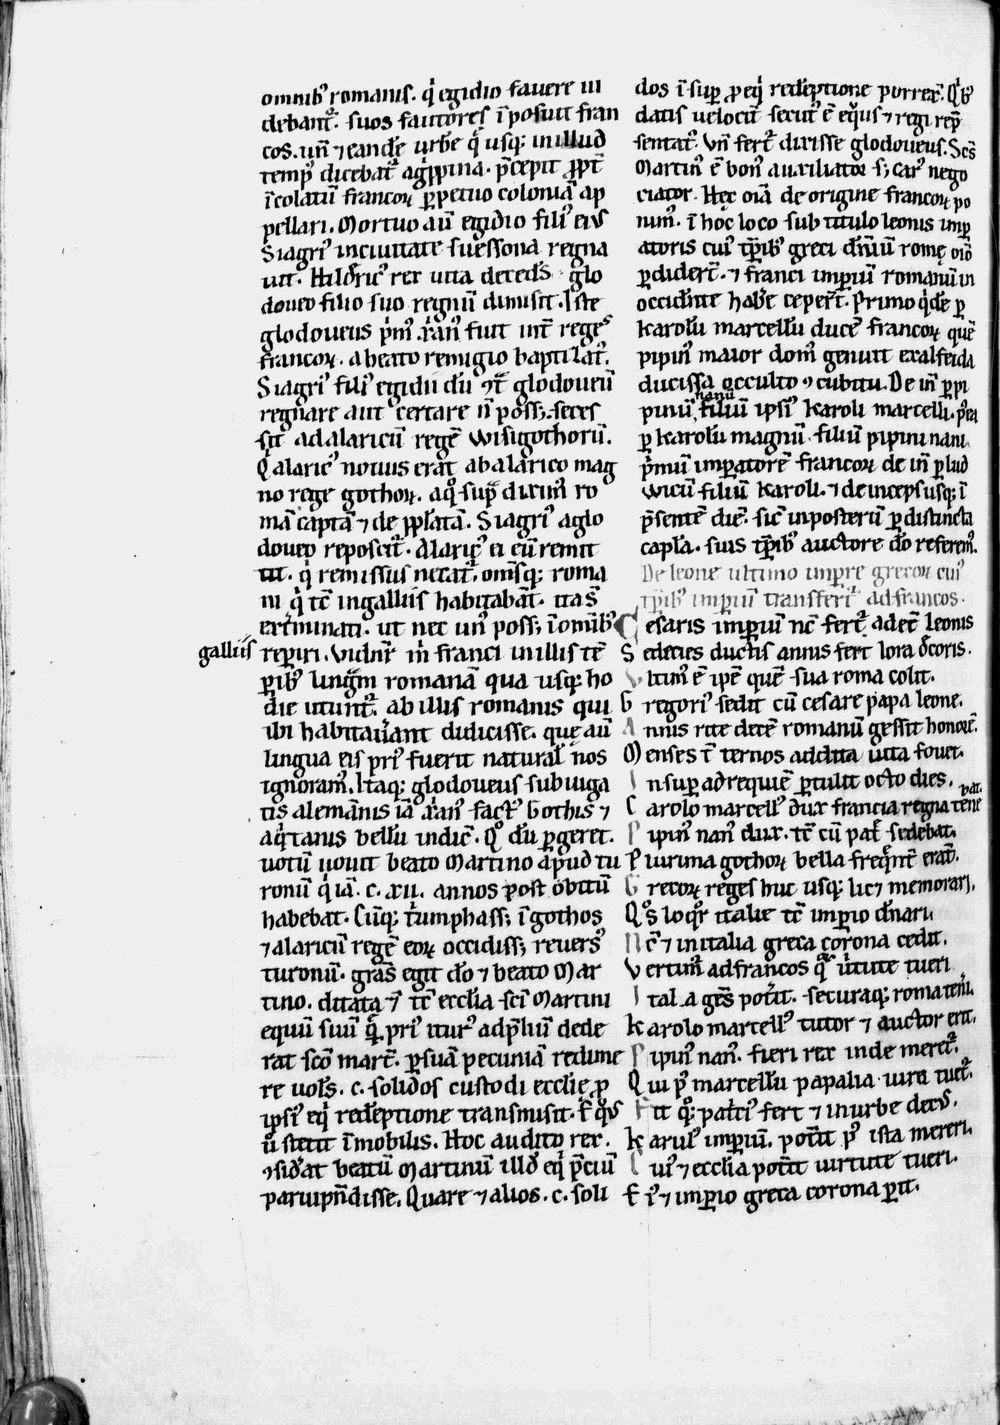 omnib᷒ romanis. q̇ egidio fauere ui
debant᷒. suos fautores ī posuit fran
cos. uñ ⁊ eandē urbē q̇ usq; in illud
temp᷒ dicebat᷒ ag̓ppina. p̄cepit ꝓpt̄
īcolatū francoꝝ ꝑpetuo coloniā ap
pellari. Mortuo aū egidio fili᷒ ei᷒
Siagri᷒ in ciuitate suessona regna
uit. Hild̓ric᷒ rex uita deced̄s glo
doueo filio suo regnū dimisit. Iste
glodoueus p̓m᷒ xp̄ian᷒ fuit int̄ reges
francoꝝ. a beato remigio baptizat᷒.
Siagri᷒ fili᷒ egidii dū ꝯt̄ glodoueū
regnare aut certare ñ poss;. seces
sit ad alaricū regē wisigothorū.
Q̇ alaric᷒ nouus erat ab alarico mag
no rege gothoꝝ. a q̊ sup̄ dixim᷒ ro
mā captā ⁊ de p̄p̄latā. Siagri᷒ a glo
doueo reposcit᷒. Alaric᷒ ei eū remit
tit. q̇ remissus necat᷒. om̄sq; roma
ni q̇ tē̄ in galliis habitabāt. ita s̄
ext̄minati. ut nec un᷒ poss; ī om̄ib᷒
galliis reꝑiri. Vident᷒ m̄ franci in illis tē
ꝑib᷒ linguam romanā qua usq; ho
die utunt᷒. ab illis romanis qui
ibi habitauerant didicisse. que aū
lingua eis pri᷒ fuerit natural᷒ nos
ignoram᷒. Itaq; glodoueus subiuga
tis alemānis iā xp̄ian᷒ fact᷒ Gothis ⁊
aq̇tanis bellū indic̄. Q̇ dū ꝑgeret.
uotū uouit beato Martino apud tu
ronū q̇ iā .c.xii. annos post obitū
habebat. Cūq; t̓umphass; ī gothos
⁊ alaricū regē eoꝝ occidiss; reuers᷒
turonū. gr̄as egit d̄o ⁊ beato Mar
tino. ditata ē tē̄ eccl̄ia sc̄i Martini
equū suū q̄ pri᷒ itur᷒ ad p̄liū dede
rat sc̄o mart̄. ꝑ suā pecuniā redime
re uol̄s. c. solidos custodi eccl̄ie ꝓ
ipsi᷒ eq̇ redēptione transmisit. s̄ eq᷒
ū stetit īmobilis. Hoc audito rex.
ꝯsid̓at beatū Martinū illd̄ eq̇ p̄ciū
paruipēdisse. Quare ⁊ alios .c. soli
dos īsuꝑ ꝓ eq̇ redēptione porrex̄. Q̇b᷒
datis uelociū secut᷒ ē equus ⁊ regi rep̄
sentat᷒. Vñ fert᷒ dixisse glodoueus. Sc̄s
Martin᷒ ē bon᷒ auxiliator s; car᷒ nego
ciator. Hec om̄ia de origine francoꝝ po
nim᷒. ī hoc loco sub titulo leonis imꝑ
atoris cui᷒ tēꝑib᷒ greci dn̄iū rome om̄o
ꝑdider̄t. ⁊ franci imꝑiū romanū in
occidente habere ceper̄t. Primo q̇dē ꝑ
karolū marcellū ducē francoꝝ quē
pipin᷒ maior dom᷒ genuit ex alfeida
ducissa occulto ꝯcubitu. Dein ꝑ pi
pinū nanū filiū ipsi᷒ karoli marcelli. p᷒ea
ꝑ karolū magnū filiū pipini nani.
p̓mū imꝑatorē francoꝝ dein ꝑ lud
wicū filiū karoli. ⁊ deinceps usq; ī
p̄sentē diē. sic̄ in posterū ꝑ distincta
capl̄a. suis tēꝑib᷒ auctore d̄o referem᷒.
De leone ultimo imꝑre grecoꝝ cui᷒
tēꝑib᷒ imꝑiū transfert᷒ ad francos.
Cesaris imꝑiū nc̄ fert᷒ adeē leonis
Sedecies ductis annis fert lora decoris.
Vltim᷒ ē ip̄e quē sua roma colit.
Gregori᷒ sedit cū cesare papa leone.
Annis rite decē romanū gessit honorē.
Menses ē̄ ternos addita uita fouet.
Insuꝑ ad requiē ꝑtulit octo dies.
Carolo marcell᷒ dux francia regna tenebat.
Pipin᷒ nan᷒ dux. tē̄ cū pat̄ sedebat.
Plurima gothoꝝ bella freq̄nt̄ erāt.
Grecoꝝ reges huc usq; lic; memorari.
Q᷒s loq̊r italie tē̄ imꝑio dn̄ari
Nē̄ ⁊ in italia greca corona cedit.
Vertim᷒ ad francos q᷒ uirtute tueri
Itala gēs pot̓it. securaq; roma teneri.
Karolo marcell᷒ tutor ⁊ auctor erit.
Pipin᷒ nan᷒. fieri rex inde meret᷒.
Qui p᷒ marcellū papalia iura tuet᷒.
Fit q᷒; patrici᷒ fert ⁊ in urbe dec᷒.
Karul᷒ imꝑiū. pot̓it p᷒ ista mereri.
Cui᷒ ⁊ eccl̄ia pot̓it uirtute tueri.
Et imꝑio greca corona ꝑit.